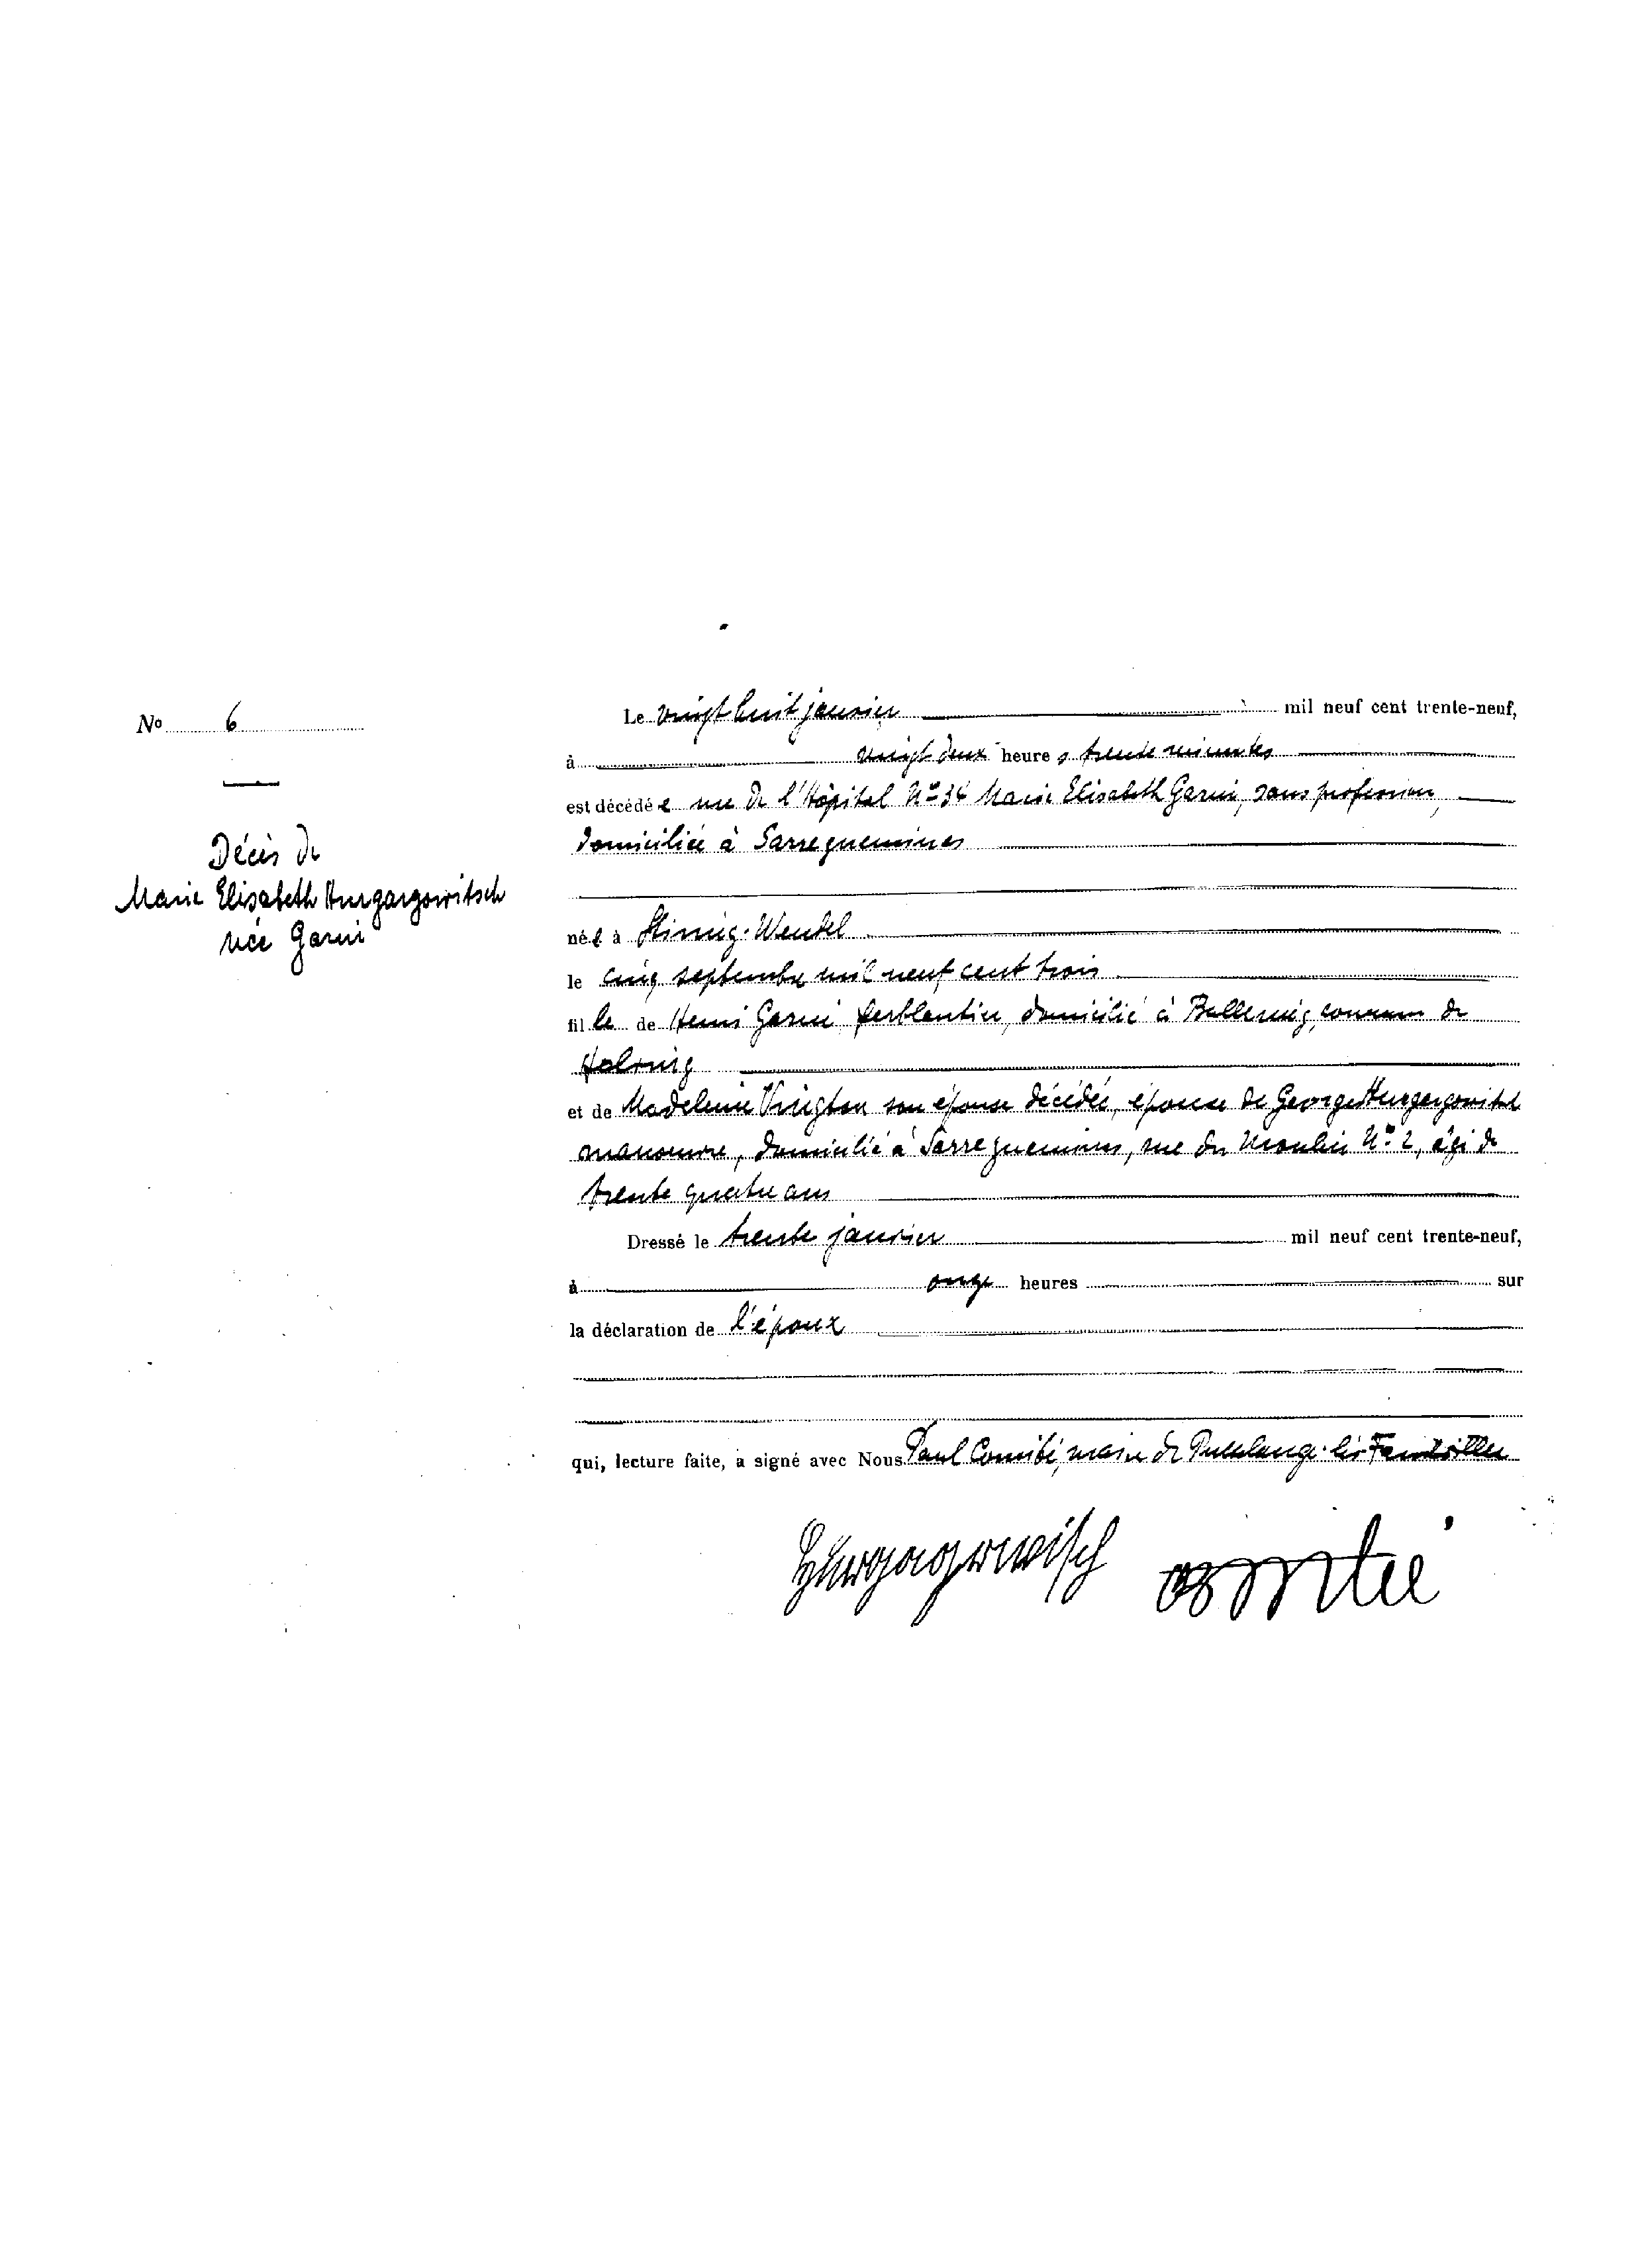 No 6
Décès de
Marie Elisabeth Hurgargowitsch
née Garni
Le vingt huit janvier mil neuf cent trente-neuf,
à vingt deux heures trente minutes
est décédée rue de l'Hôpital No 34 Marie Elisabeth Garni, sans profession,
domiciliée à Sarreguemines
née à Wendel
le cinq septembre mil neuf cent trois
fille de Henri Garni ferblantier, domicilié à Ballering, commune de
Holving
et de Madeleine son épouse décédée, épouse de George Hurgargowitsch
manoeuvre, domicilié à Sarreguemines, rue du Moulin No 2, âgé de
trente quatre ans
Dressé le trente janvier mil neuf cent trente-neuf,
à onze heures sur
la déclaration de l'époux
qui, lecture faite, a signé avec Nous Paul Comité, maire de Puttelange-lès-Farschviller